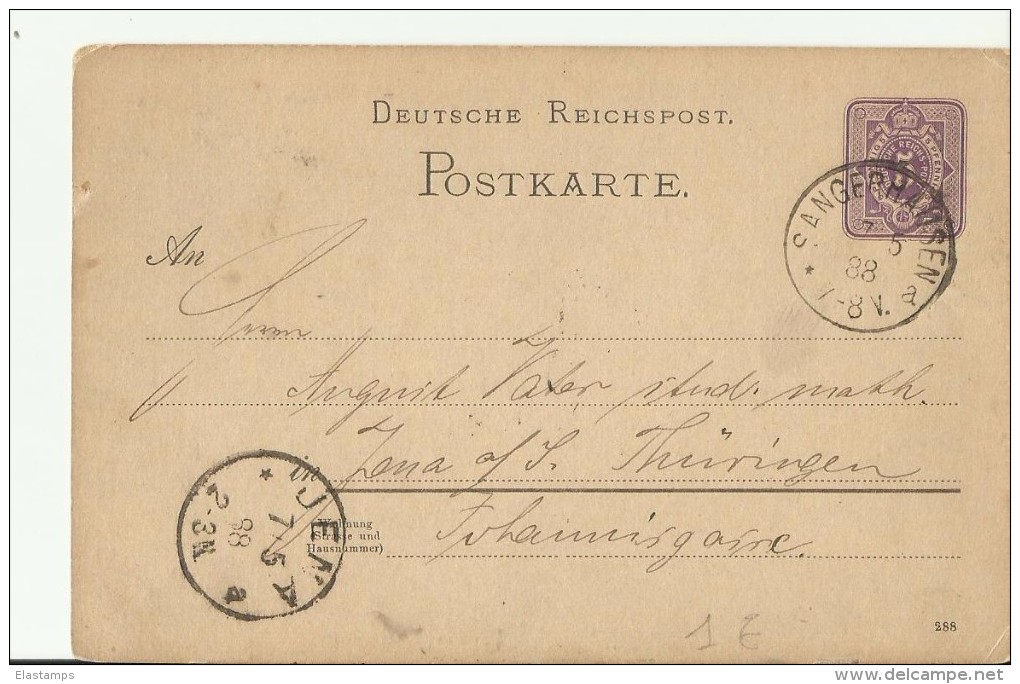 DEUTSCHE REICHSPOST.
POSTKARTE.
5 PFENNIG
SANGERHAUSEN
7 5
88
7-8 V. a
An
Herrn
August Vater stud. math.
in Jena a/S. Thüringen
Wohnung
(Strasse und
Hausnummer)
Johannisgasse.
JENA
7-5
88
2-3N
a
1 €
288
Elastamps
www.delcampe.net